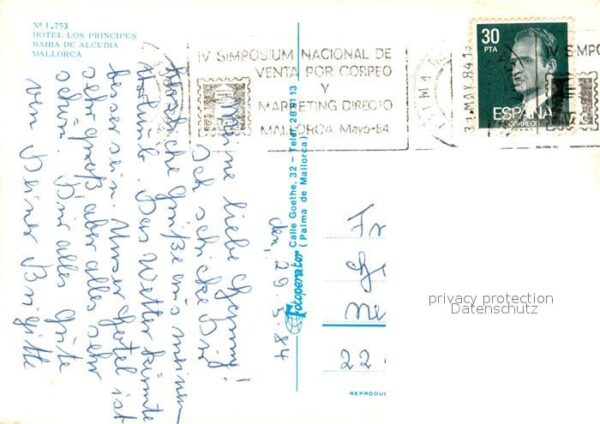 Nº 1.753
HOTEL LOS PRINCIPES
BAHIA DE ALCUDIA
MALLORCA
IV SIMPOSIUM NACIONAL DE
VENTA POR CORREO
Y
MARKETING DIRECTO
MALLORCA Mayo-84
31 MAY. 84
30
PTA
ESPAÑA
CORREOS
IV SIMPO
den, 29.5.84
Meine liebe
Ich schicke Dir
herzliche Grüße aus meinem
Urlaub. Das Wetter könnte
besser sein. Unser Hotel ist
sehr groß aber alles sehr
schön. Dir alles Gute
von Deiner Brigitte
Fotoperator Calle Goethe, 32 - Telef. 28 91 13
(Palma de Mallorca)
Fr
22
REPRODUC
privacy protection
Datenschutz